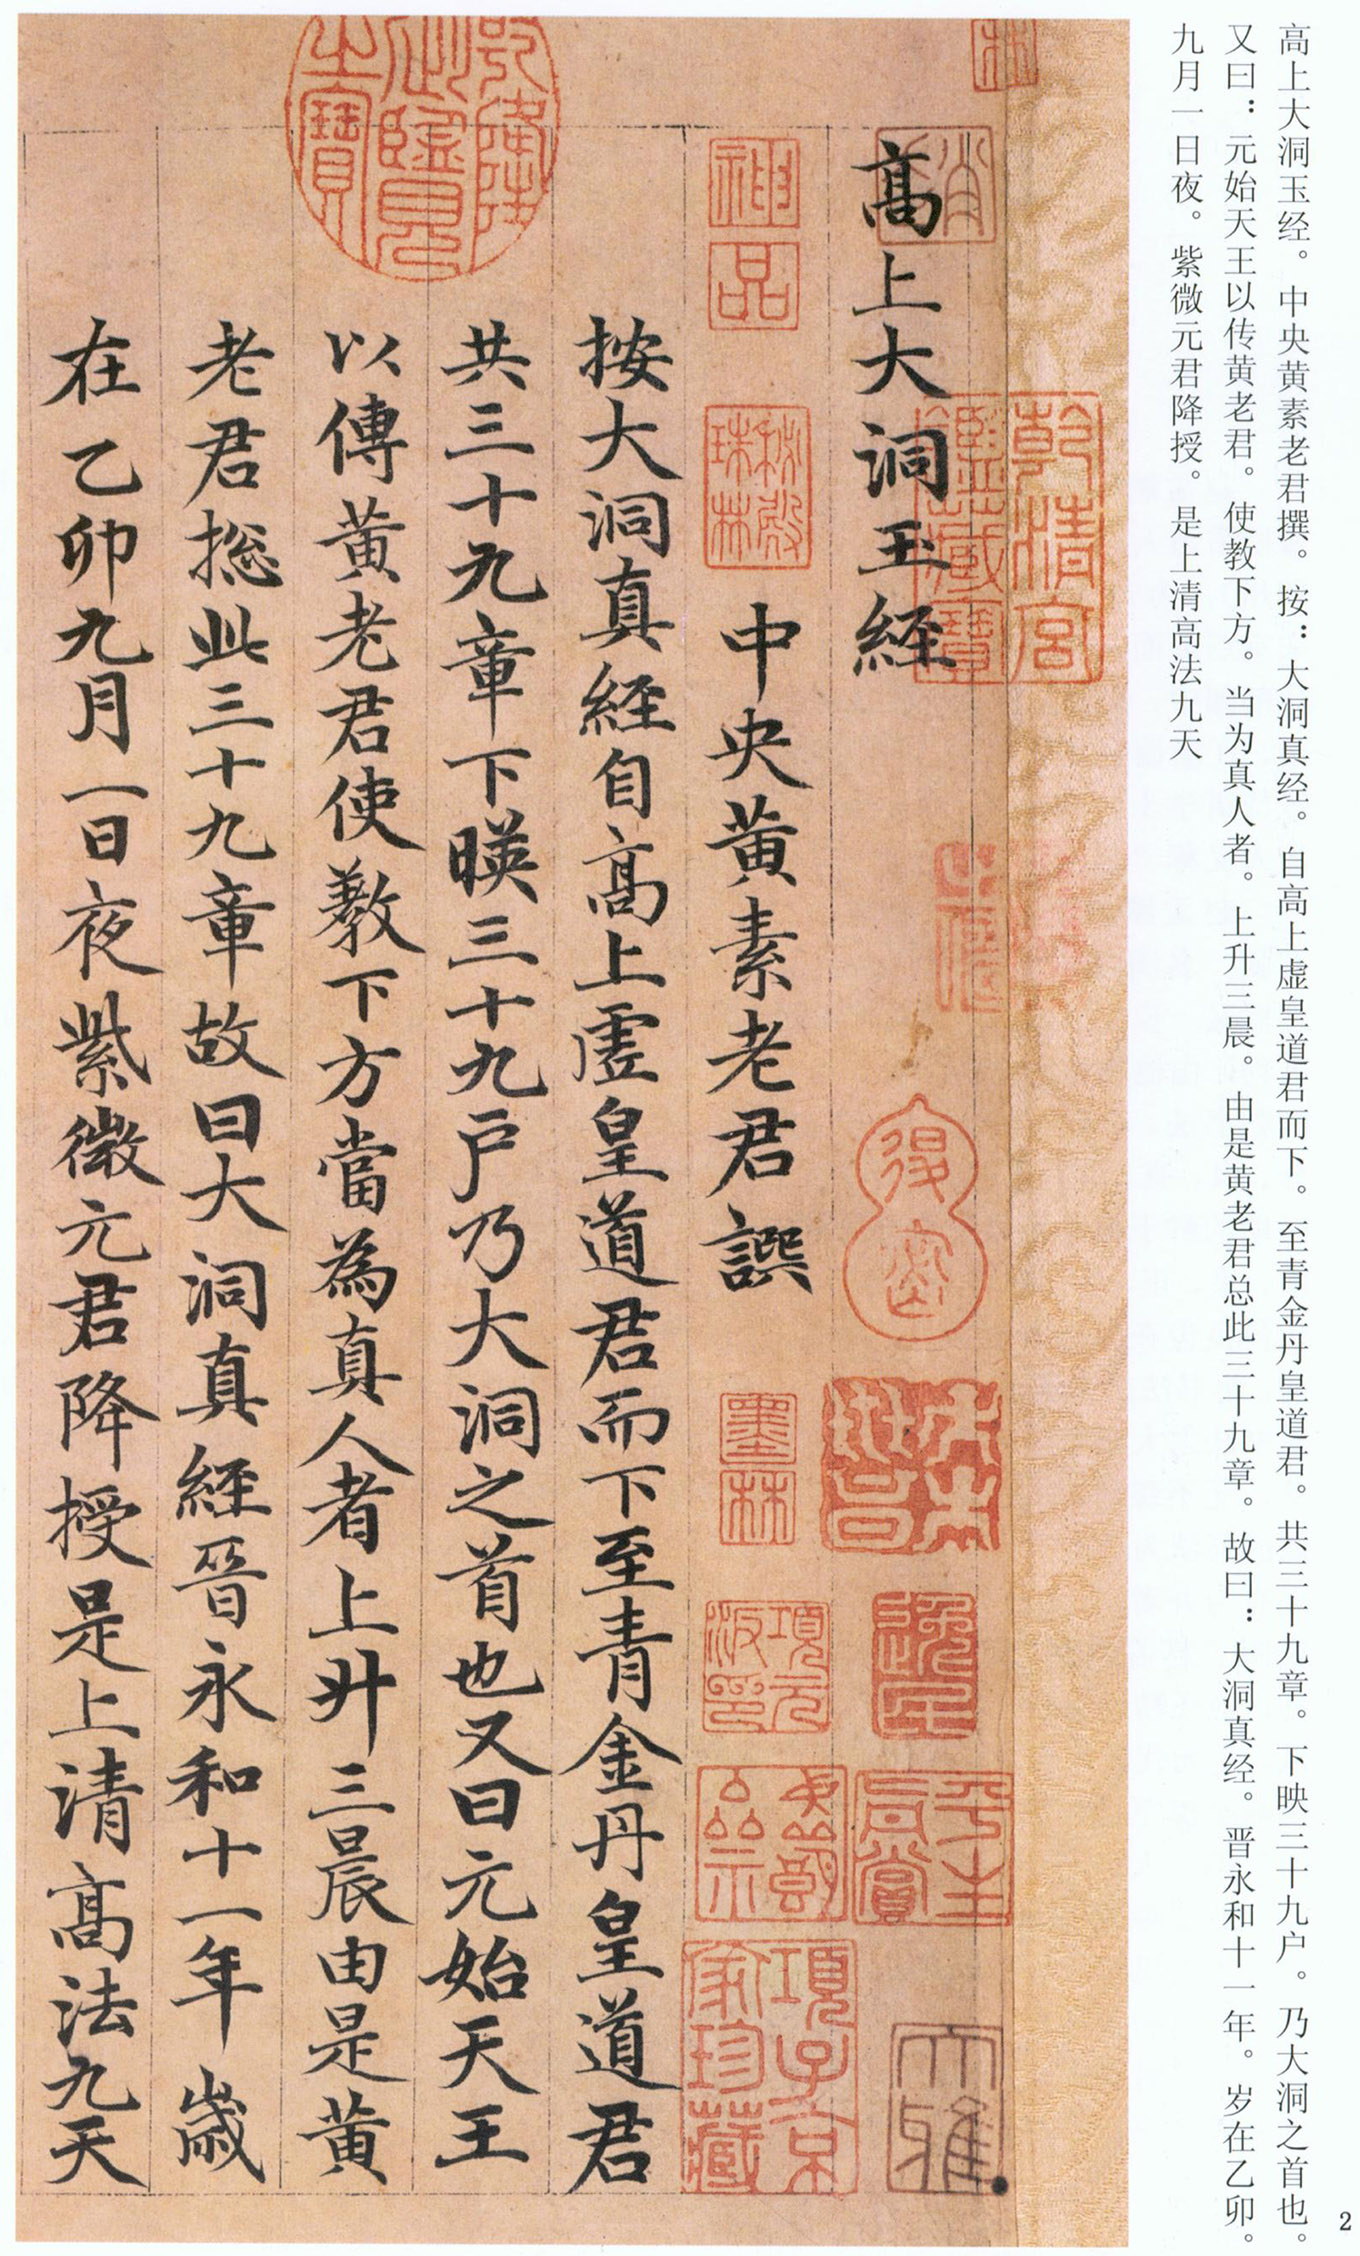 高上大洞玉经。中央黄素老君撰。按：大洞真经。自高上虚皇道君而下。至青金丹皇道君。共三十九章。下映三十九户。乃大洞之首也。
又曰：元始天王以传黄老君。使教下方。当为真人者。上升三晨。由是黄老君总此三十九章。故曰：大洞真经。晋永和十一年。岁在乙卯。
九月一日夜。紫微元君降授。是上清高法九天
2
高上大洞玉經
中央黄素老君譔
按大洞真經自高上虛皇道君而下至青金丹皇道君
共三十九章下暎三十九戶乃大洞之首也又曰元始天王
以傳黄老君使教下方當為真人者上升三晨由是黄
老君捴此三十九章故曰大洞真經晉永和十一年歲
在乙卯九月一日夜紫微元君降授是上清高法九天
乾隆御覽之寶
乾清宮鑒藏寶
神品
墨林
項元汴印
子京
項子京家珍藏
大雅